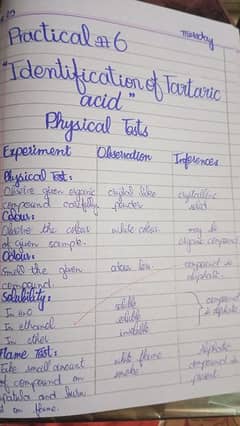 Practical #6
"Identification of Tartaric
acid"
Physical Tests
Experiment Observation Inferences
Physical Test:
Observe given organic crystal like crystalline
compound carefully powder solid
Colour:
Observe the colour white colour may be
of given sample. organic compound
Odour:
Smell the given compound is
compound. aliphatic
Solubility:
In H2O compound
In ethanol is aliphatic
In ether
Flame Test:
Take small amount white flame Aliphatic
of compound on smoke compound is
spatula and burn present
it on flame.